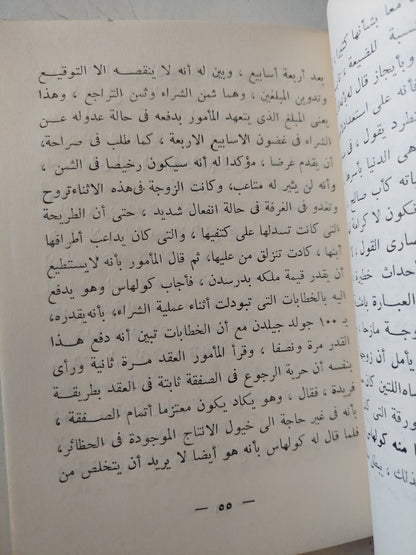 بعد أربعة أسابيع ، وبين له أنه لا ينقصه الا التوقيع
وتدوين المبلغين ، وهما ثمن الشراء وثمن التراجع ، وهذا
يعنى المبلغ الذى يتعهد المأمور بدفعه فى حالة عدوله عن
الشراء فى غضون الاسابيع الاربعة ، كما طلب فى صراحة،
أن يقدم عرضا ، مؤكدا له أنه سيكون رخيصا فى الثمن ،
وأنه لن يثير له متاعب، وكانت الزوجة فى هذه الاثناء تروح
وتغدو فى الغرفة فى حالة انفعال شديد ، حتى أن الطريحة
التى كانت تسدلها على كتفيها ، والتى كان يداعب أطرافها
أبنها ، كادت تنزلق من عليها، ثم قال المأمور بأنه لايستطيع
أن يقدر قيمة ملكه بدرسدن، فأجاب كولهاس وهو يدفع
اليه بالخطابات التى تبودلت أثناء عملية الشراء، بأنه يقدره،
بـ ١٠٠ جولد جيلدن مع أن الخطابات تبين أنه دفع هذا
القدر مرة ونصفا ، وقرأ المأمور العقد مرة ثانية ورأى
بنفسه أن حرية الرجوع فى الصفقة ثابتة فى العقد بطريقة
فريدة ، فقال ، وهو يكاد يكون معتزما أتمام الصفقة ،
بأنه فى غير حاجة الى خيول الانتاج الموجودة فى الحظائر،
فلما قال له كولهاس بأنه هو أيضا لا يريد أن يتخلص من
— ٥٥ —
معا بشأنها
سبة للضيعة ،
وبأيجاز قال له
فأنه على استعداد
تطرد يقول ، فى
هى الدنيا بأسرها
ئاته كأب صالح
تكون لا كرامة
صارى القول ،
حداث خطيرة
العبارة
وجة مازحا
يأمل أن زوجه
ماه اللتين كان
ورقة التى
ا منه كولهاس
ذلك ،